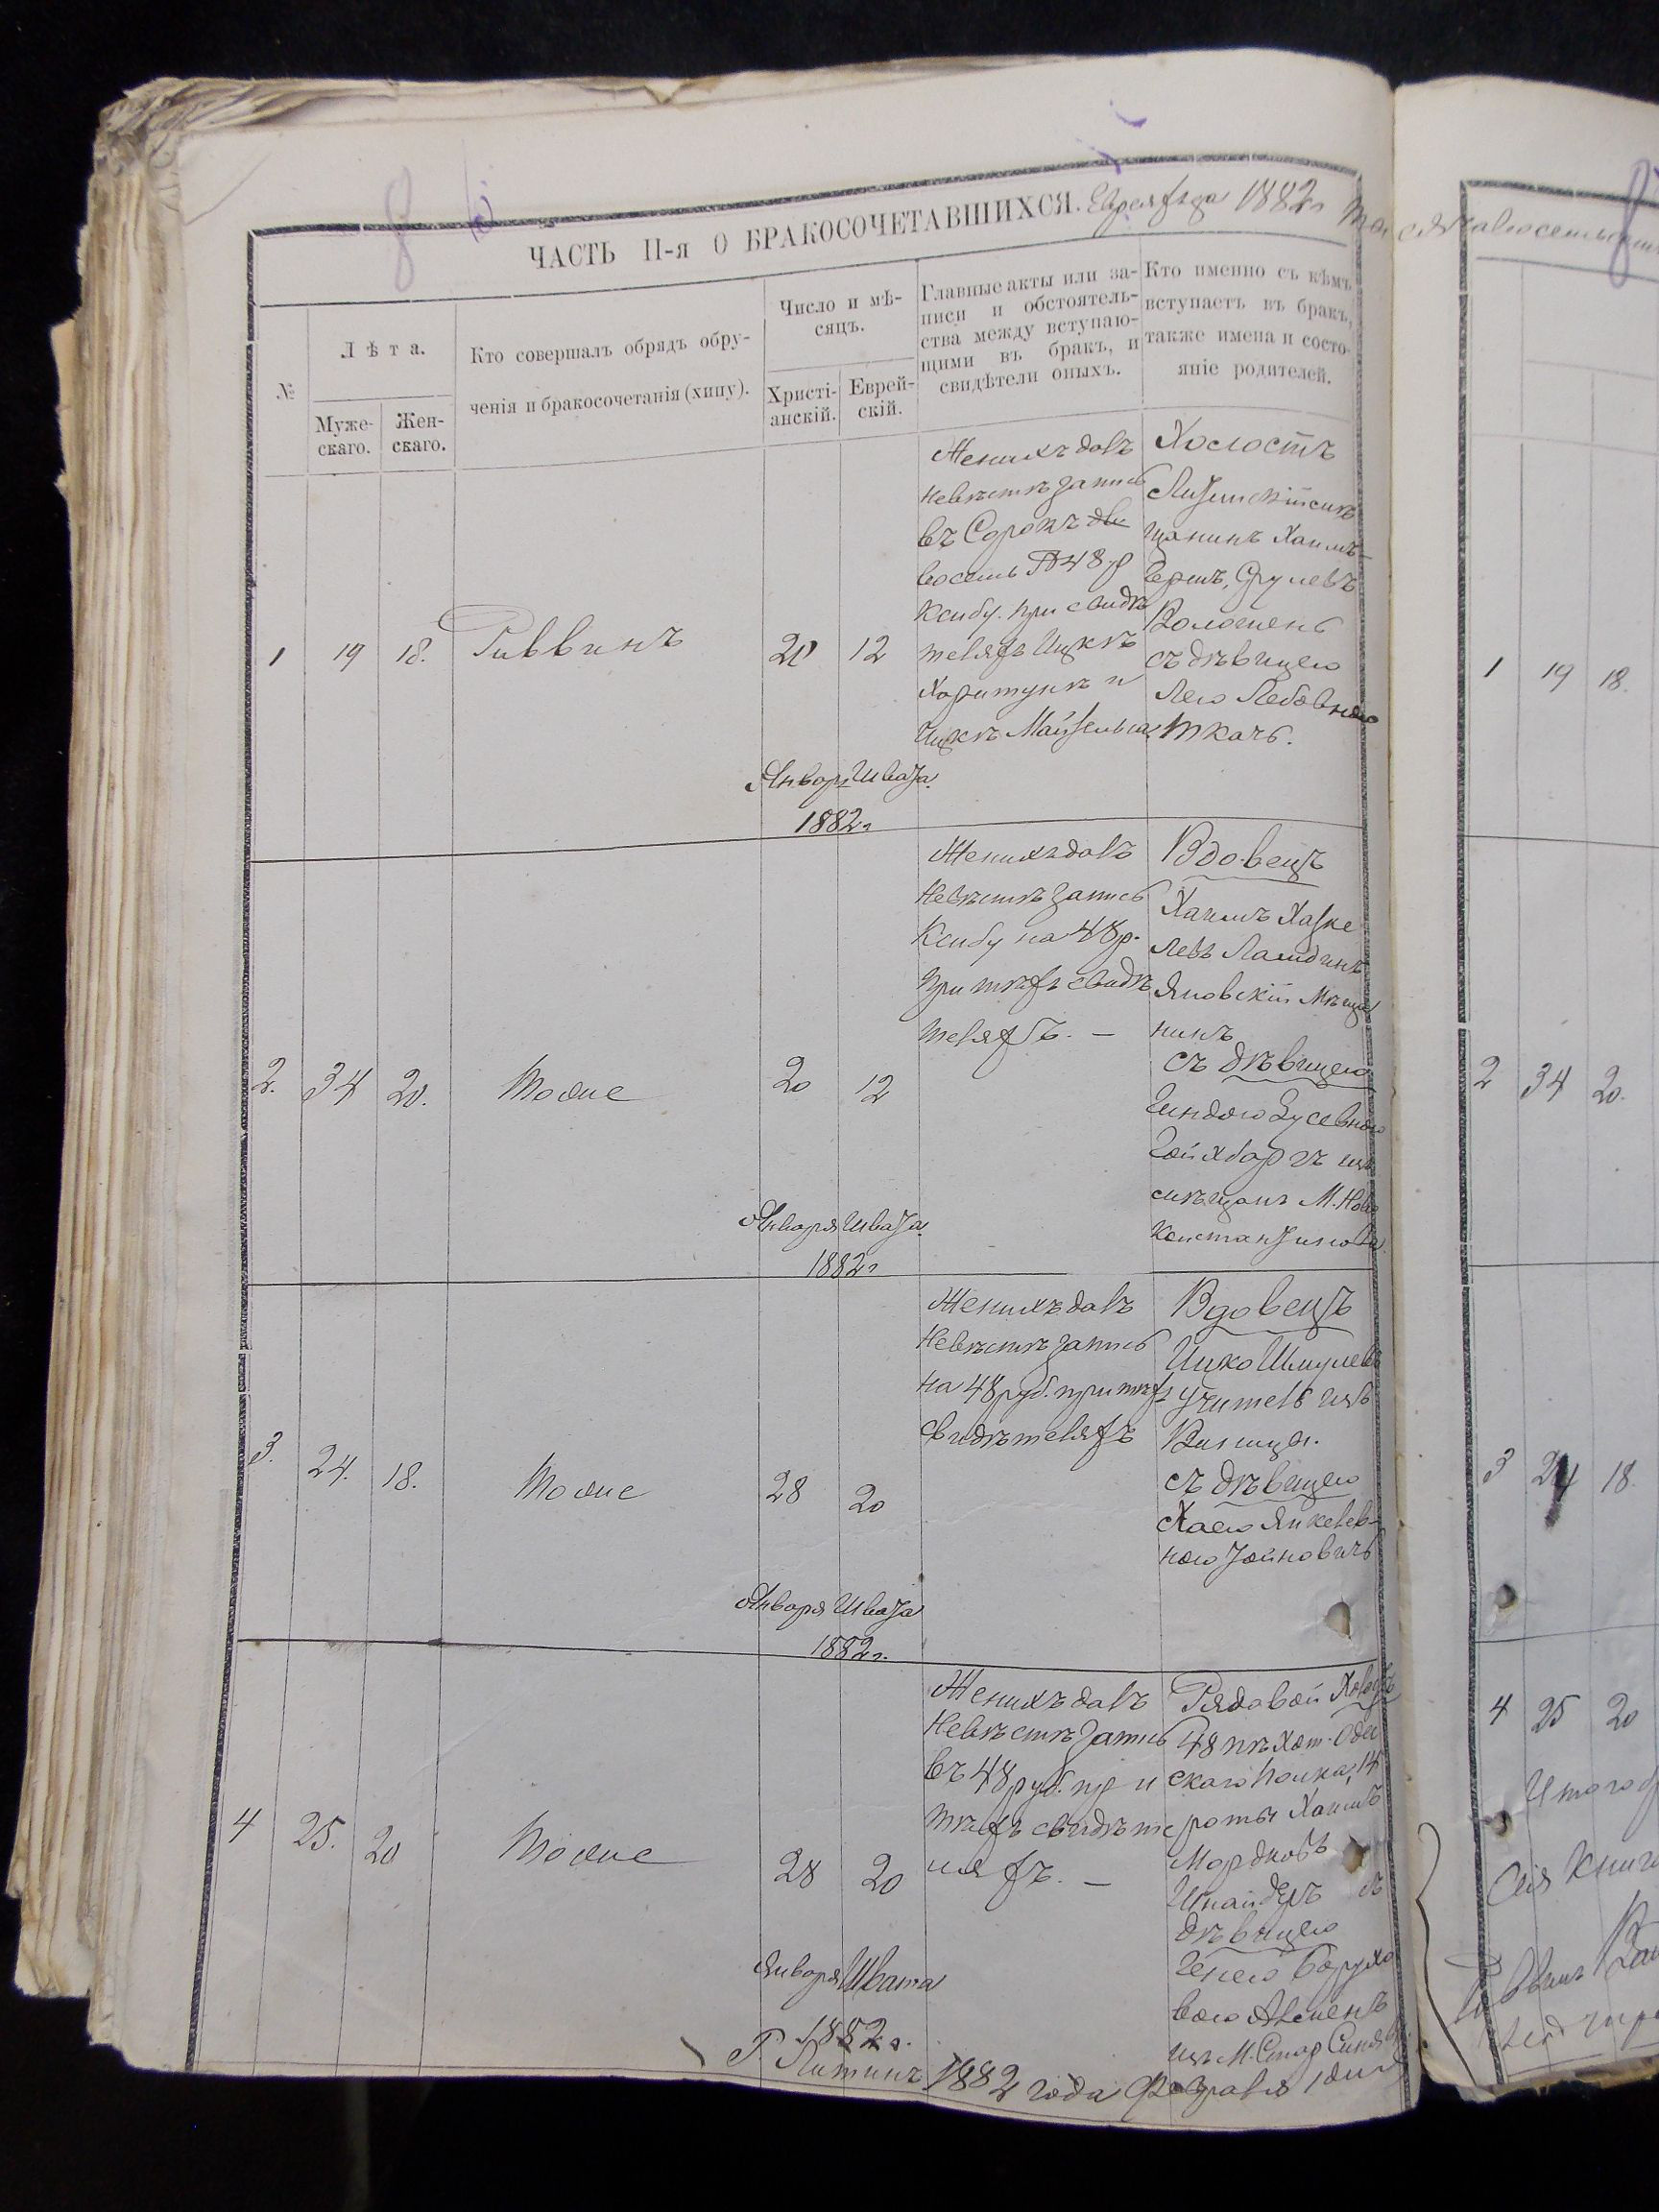 ЧАСТЬ II-я О БРАКОСОЧЕТАВШИХСЯ. 1882 г
№
Лѣта.
Муже-
скаго.
Жен-
скаго.
Кто совершалъ обрядъ обру-
ченія и бракосочетанія (хипу).
Число и мѣ-
сяцъ.
Христі-
анскій.
Еврей-
скій.
Главные акты или за-
писи и обстоятель-
ства между вступаю-
щими въ бракъ, и
свидѣтели оныхъ.
Кто именно съ кѣмъ
вступаетъ въ бракъ,
также имена и состо-
яніе родителей.
1 19 18. Раввинъ 20 12
Января Швата
1882 г
Женихъ далъ
невѣстѣ запись
въ Сорокъ
восемь 48 р
Ксибу. при свидѣ
теляхъ Ицкѣ
и
Ицкѣ
Холостъ
щанинъ Хаимъ-
Герш, Сруловъ
Волошенъ
съ дѣвицею
Лею Лебовною
Ткачъ.
2. 34 20. Тоже 20 12
Января Швата
1882 г
Женихъ далъ
невѣстѣ запись
Ксибу на 48 р.
При тѣхъ свидѣ
теляхъ. —
Вдовецъ
Хаимъ Хаске
левъ
Яновскій Мѣща
нинъ
съ дѣвицею
Гиндою Зусевною
изъ
мѣщанъ М. Ново
Константинова
3. 24. 18. Тоже 28 20
Января Швата
1882 г.
Женихъ далъ
Невѣстѣ запись
на 48 руб. при тѣхъ
Свидѣтеляхъ
Вдовецъ
Ицко Шмулевъ
Учитель изъ
Винницы.
съ дѣвицею
Хаею Янкелев-
ною Зойновичъ
4 25. 20 Тоже 28 20
Января Швата
1882 г.
Женихъ далъ
Невѣстѣ запись
въ 48 руб. при
тѣхъ свидѣте
ляхъ. —
Рядовой Холостъ
48 пѣхот. Одес
скаго Полка, 14
роты Хаимъ
Мордковъ
Шнайдеръ съ
дѣвицею
Генею Борухо
вою
изъ М. Стар Синяв
Г. Литинъ 1882 года Февраля 1 дня
1 19 18.
2 34 20.
3 24 18.
4 25 20
Сія Книга